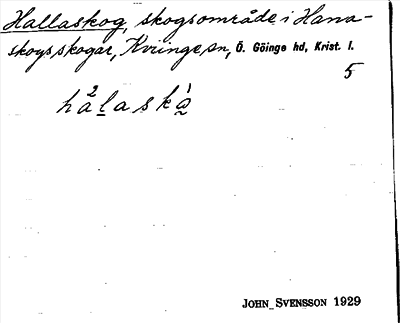 Hallaskog, skogsområde i Hana-
skogs skogar, Kviinge sn, Ö. Göinge hd, Krist. l.
5
ha²laskа̰¹
JOHN SVENSSON 1929